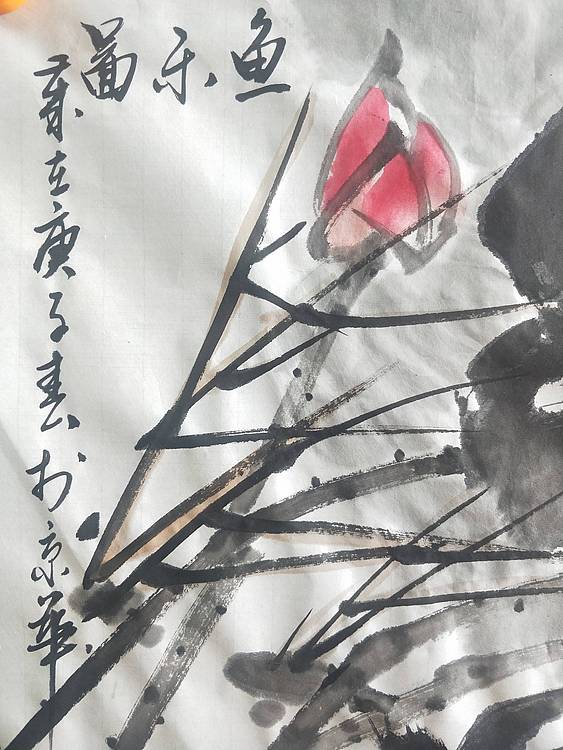 鱼乐啚
岁在庚子春于京华